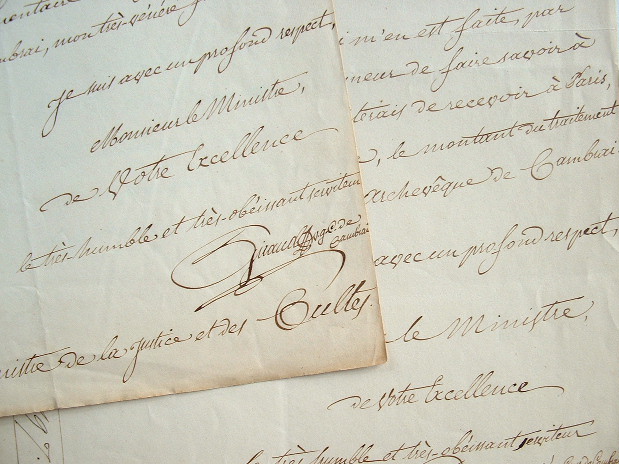 mentaire
mbrai, mon très-vénéré
Je suis avec un profond respect,
Monsieur le Ministre,
de Votre Excellence
le très humble et très-obéissant serviteur
Giraud
de
Cambrai
nistre de la Justice et des Cultes.
i m'en est faite, par
neur de faire savoir à
terais de recevoir à Paris,
e, le montant du traitement
archevêque de Cambrai
avec un profond respect,
le Ministre,
de Votre Excellence
le très humble et très-obéissant serviteur